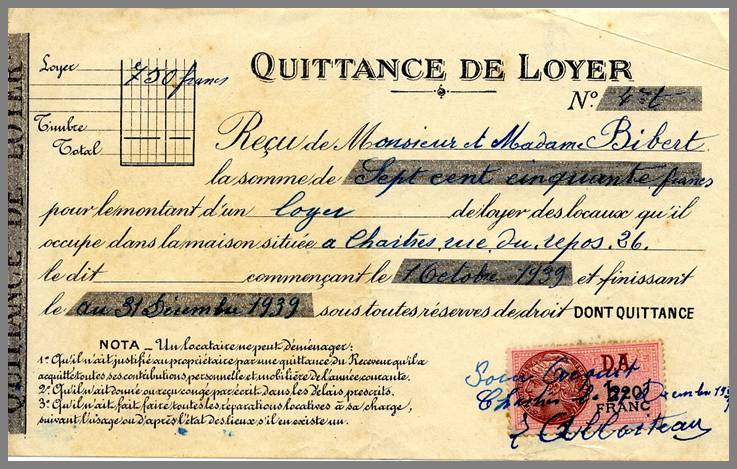 QUITTANCE DE LOYER
Loyer 750 francs
Nº 4
Timbre
Total
Reçu de Monsieur et Madame Bibert
la somme de Sept cent cinquante francs
pour le montant d'un loyer de loyer des locaux qu'il
occupe dans la maison située a Chartres rue du repos. 26.
le dit commençant le 1 Octobre 1939 et finissant
le au 31 Décembre 1939 sous toutes réserves de droit DONT QUITTANCE
NOTA _ Un locataire ne peut déménager:
1º Qu'il n'ait justifié au propriétaire par une quittance du Receveur qu'il a
acquitté toutes ses contributions, personnelle et mobilière de l'année courante.
2º Qu'il n'ait donné ou reçu congé par écrit dans les délais prescrits.
3º Qu'il n'ait fait faire toutes les réparations locatives à sa charge,
suivant l'usage ou d'après l'état des lieux s'il en existe un.
DA
Pour acquit
FRANC
QUITTANCE DE LOYER